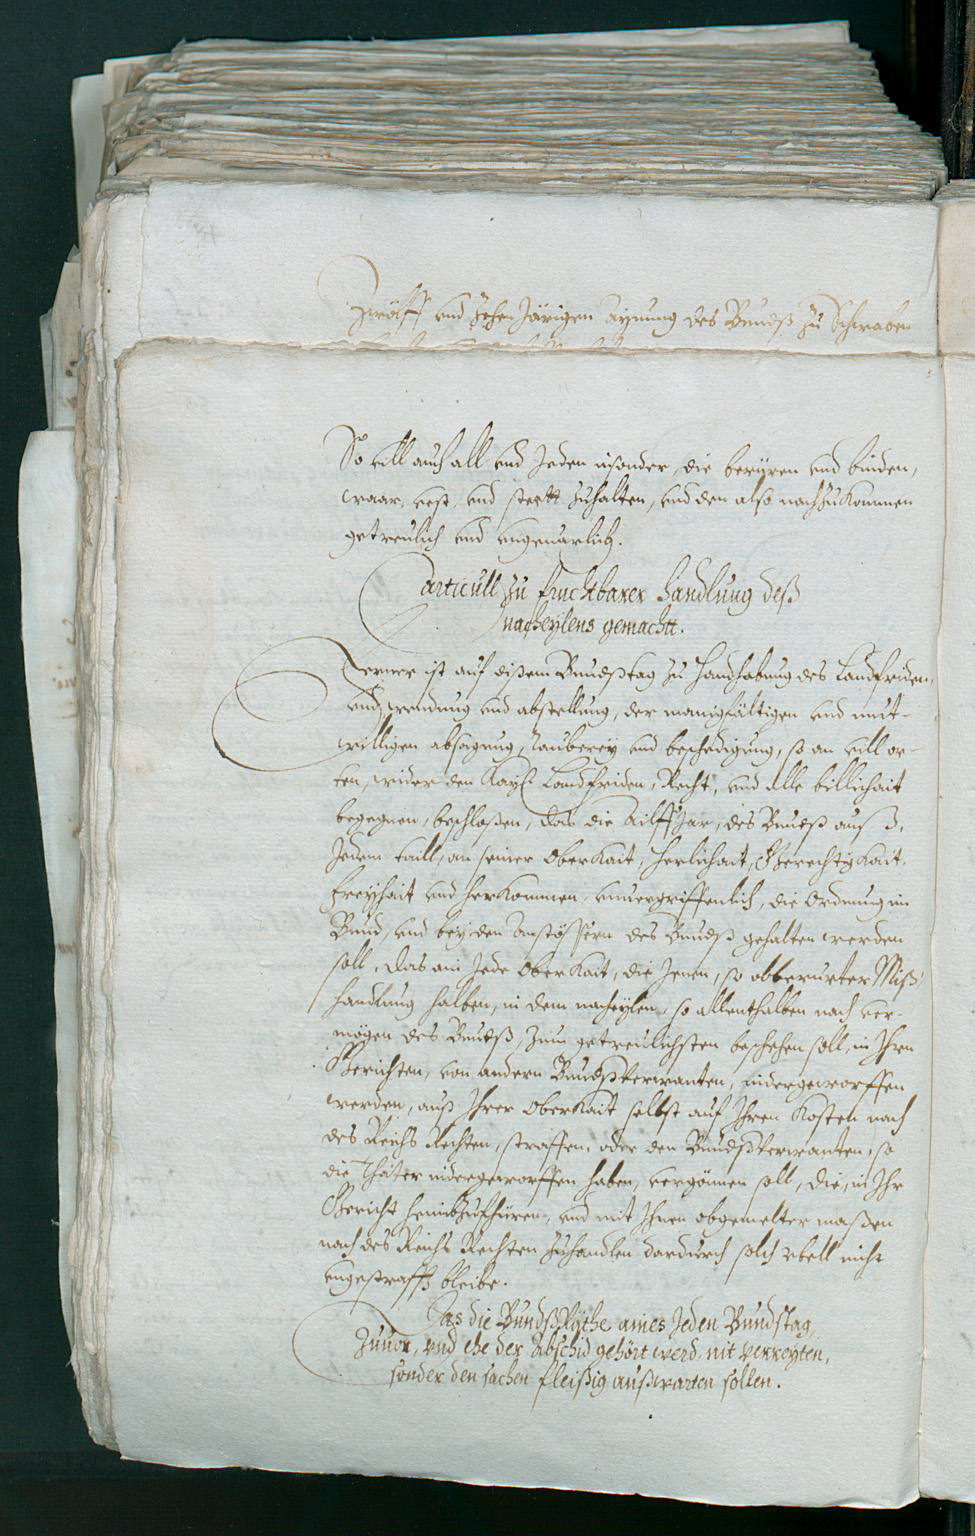 Zwölff vnd Zehen Järigen Aynung des Bundß zu Schwaben
So vill auch all vnd Jeden insonder, die berüren vnd binden,
waar, vest, vnd stett zuhalten, vnd den also nachzukommen
getreulich vnd vngeuarlich.
Articull zu fruchtbarer handlung deß
nacheylens gemacht.
Ferner ist auf disem Bundßtag zu Handhabung des Landfriden,
vnd wendung vnd abstellung, der manigfältigen vnd mut-
willigen absagung, Rauberey vnd beschedigung, so an vill or-
ten, wider den Kayß Landfriden, Recht, vnd alle billichait
begegnen, beschloßen, das die Ailff Jar, des Bundß auß,
Jedem thaill, an seiner Oberkait, Herlichait, Gerechtigkait,
Freyhait vnd herkommen, vnuergriffenlich, die Ordnung im
Bund, vnd bey den Anstössern des Bundß gehalten werden
soll, das ain Jede Oberkait, die Jenen, so obberurter Miß-
handlung halben, in dem nacheylen, so allenthalben nach ver-
mögen des Bundß, zum getreulichsten beschehen soll, in Ihren
Gerichten, von andern Bundßverwanten, nidergeworffen
werden, auß Ihrer Oberkait selbst auf Ihren Kosten nach
des Reichs Rechten, straffen, oder den Bundßverwanten, so
die Thäter nidergeworffen haben, vergönnen soll, die, in Ihr
Gericht heimbzufhüren, vnd mit Ihnen obgemelter maßen
nach des Reichs Rechten zuhandlen dardurch solch vbell nicht
vngestrafft bleibe.
Das die Bundß Räthe aines Jeden Bundstag
zuuor, vnd ehe der Abschid gehört werd, nit verreyten,
sonder den sachen fleißig außwarten sollen.